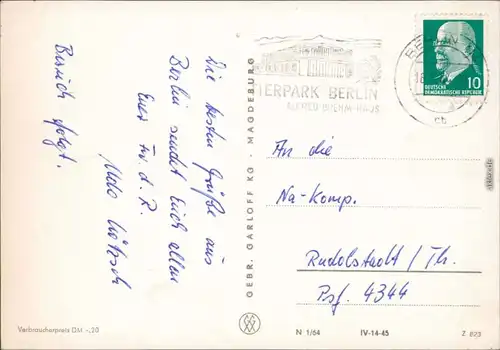 Die besten Grüße aus
Berlin sendet Euch allen
Euer Fr. d. R.
Udo
Besuch folgt.
Verbraucherpreis DM -,20
GEBR. GARLOFF KG · MAGDEBURG
TIERPARK BERLIN
ALFRED-BREHM-HAUS
BERLIN
cb
10
DEUTSCHE
DEMOKRATISCHE REPUBLIK
An die
Na-Komp.
Rudolstadt / Th.
Psf. 4344
N 1/64 IV-14-45 Z 823